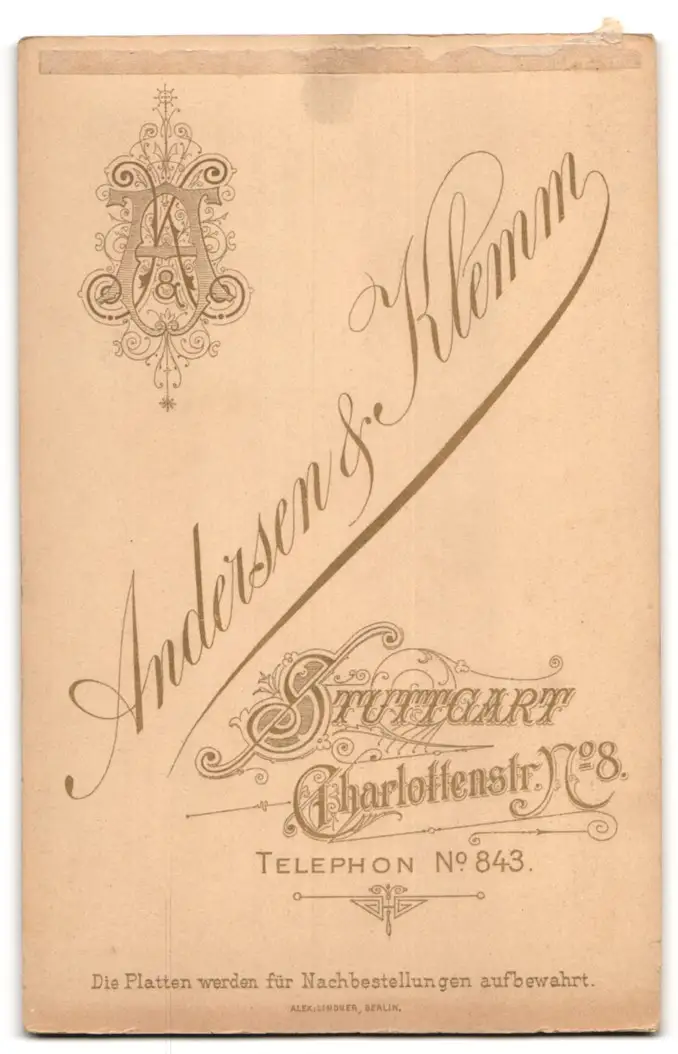 A & K
Andersen & Klemm
STUTTGART
Charlottenstr. No 8.
TELEPHON No 843.
Die Platten werden für Nachbestellungen aufbewahrt.
ALEX. LINDNER, BERLIN.